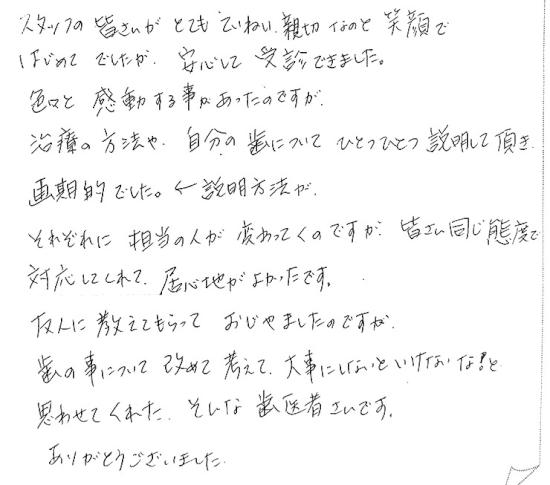 スタッフの皆さんがとてもていねい、親切なのと笑顔で
はじめてでしたが、安心して受診できました。
色々と感動する事があったのですが、
治療の方法や、自分の歯についてひとつひとつ説明して頂き、
画期的でした。←説明方法が、
それぞれに担当の人が変わってくのですが、皆さん同じ態度で
対応してくれて、居心地がよかったです。
友人に教えてもらっておじゃましたのですが、
歯の事について改めて考えて、大事にしないといけないな！と
思わせてくれた、そんな歯医者さんです。
ありがとうございました。